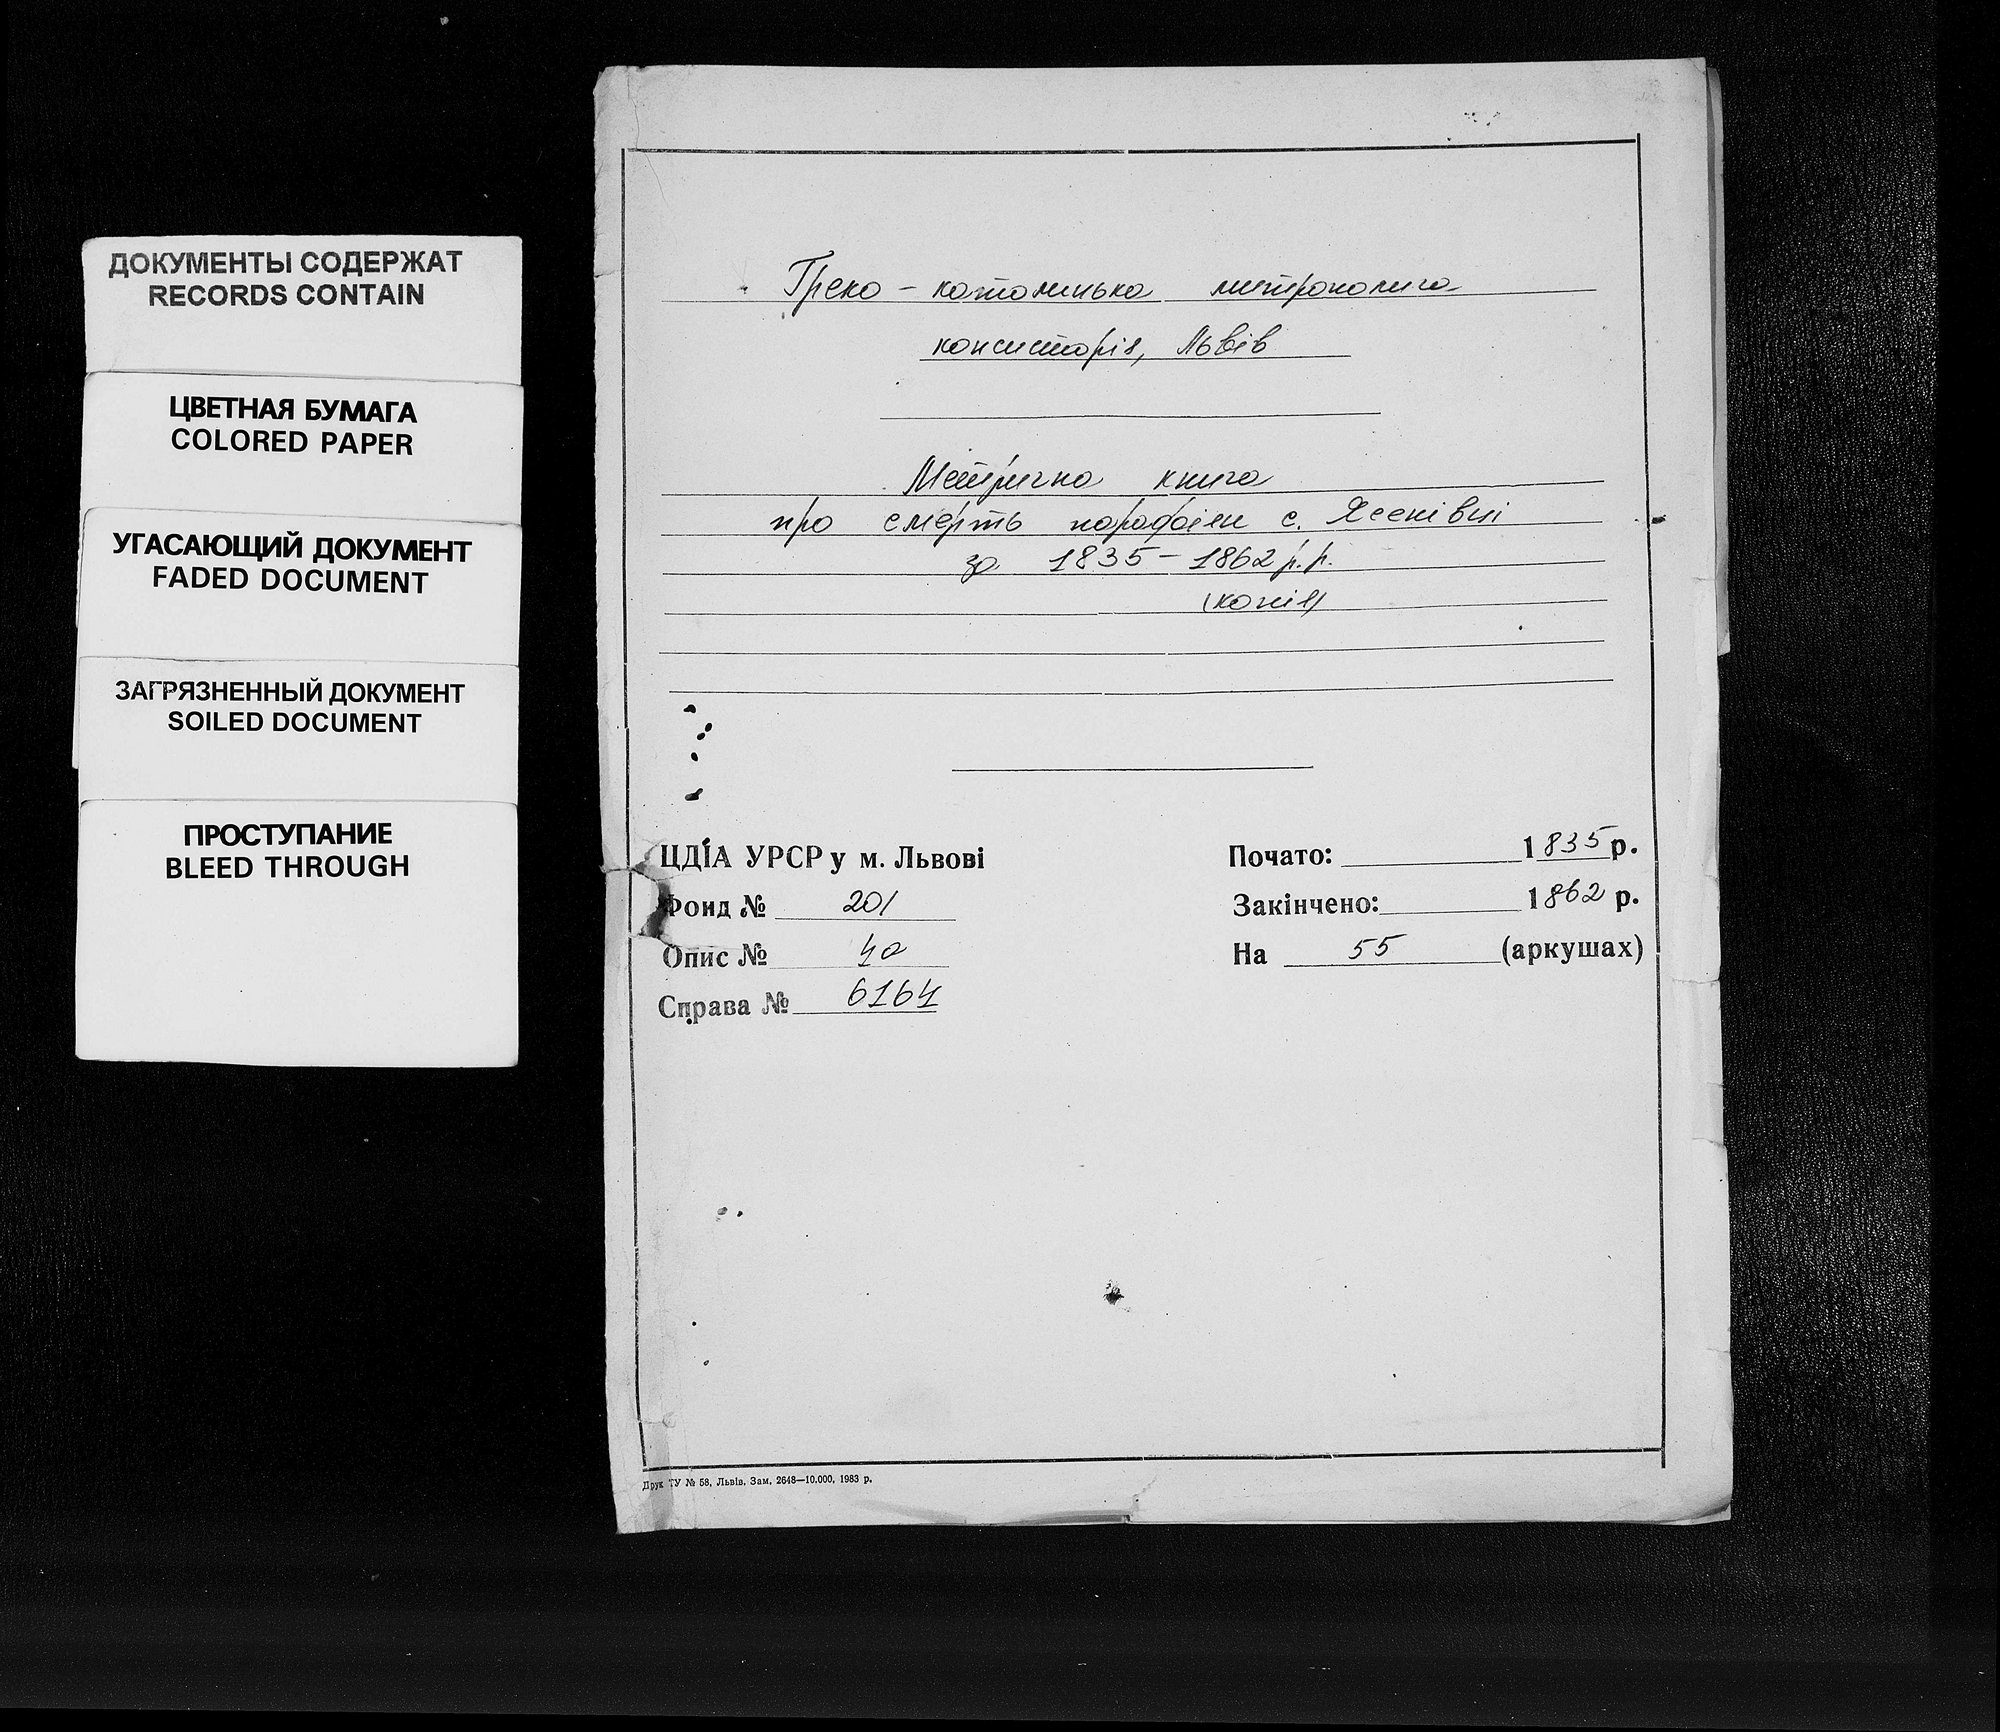 ДОКУМЕНТЫ СОДЕРЖАТ
RECORDS CONTAIN
ЦВЕТНАЯ БУМАГА
COLORED PAPER
УГАСАЮЩИЙ ДОКУМЕНТ
FADED DOCUMENT
ЗАГРЯЗНЕННЫЙ ДОКУМЕНТ
SOILED DOCUMENT
ПРОСТУПАНИЕ
BLEED THROUGH
Греко-католицька митрополича
консисторія, Львів
Метрична книга
про смерть парафіян с. Ясенівці
за 1835-1862 р.р.
(копія)
ЦДІА УРСР у м. Львові
Фонд № 201
Опис № 4а
Справа № 6164
Почато: 1835 р.
Закінчено: 1862 р.
На 55 (аркушах)
Друк ТУ № 58, Львів. Зам. 2648—10.000, 1983 р.